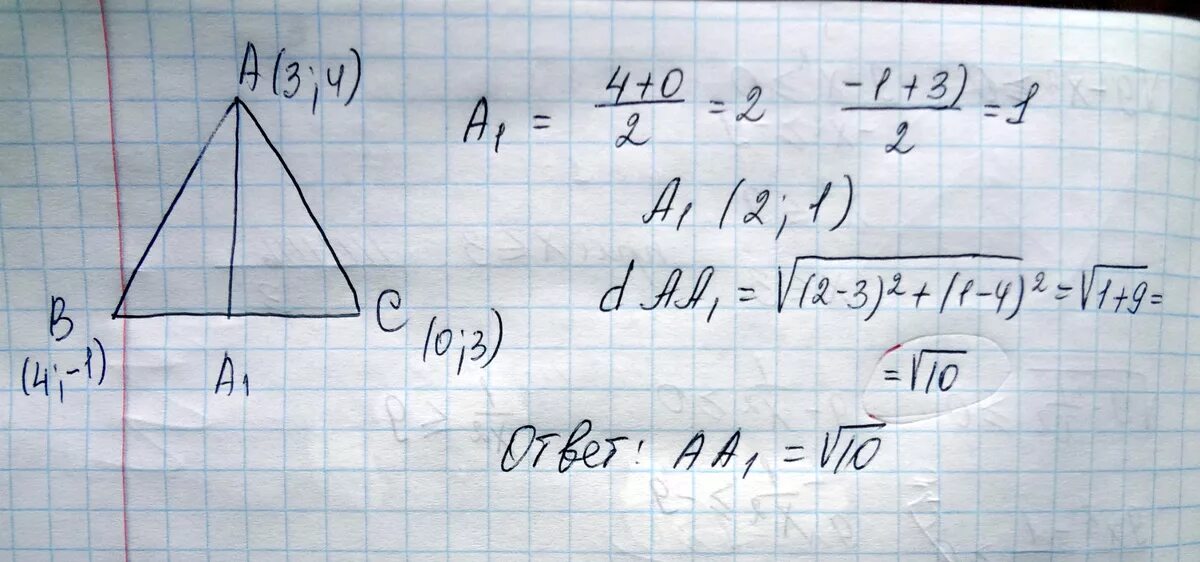 A (3; 4)
B
(4; -1)
A₁
C
(0; 3)
A₁ = (4+0)/2 = 2 (-1+3)/2 = 1
A₁ (2; 1)
d AA₁ = √(2-3)² + (1-4)² = √1+9 =
= √10
Ответ: AA₁ = √10